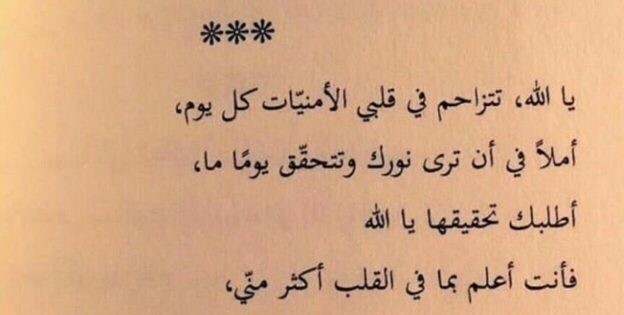 ***
يا الله، تتزاحم في قلبي الأمنيّات كل يوم،
أملاً في أن ترى نورك وتتحقّق يومًا ما،
أطلبك تحقيقها يا الله
فأنت أعلم بما في القلب أكثر منّي،